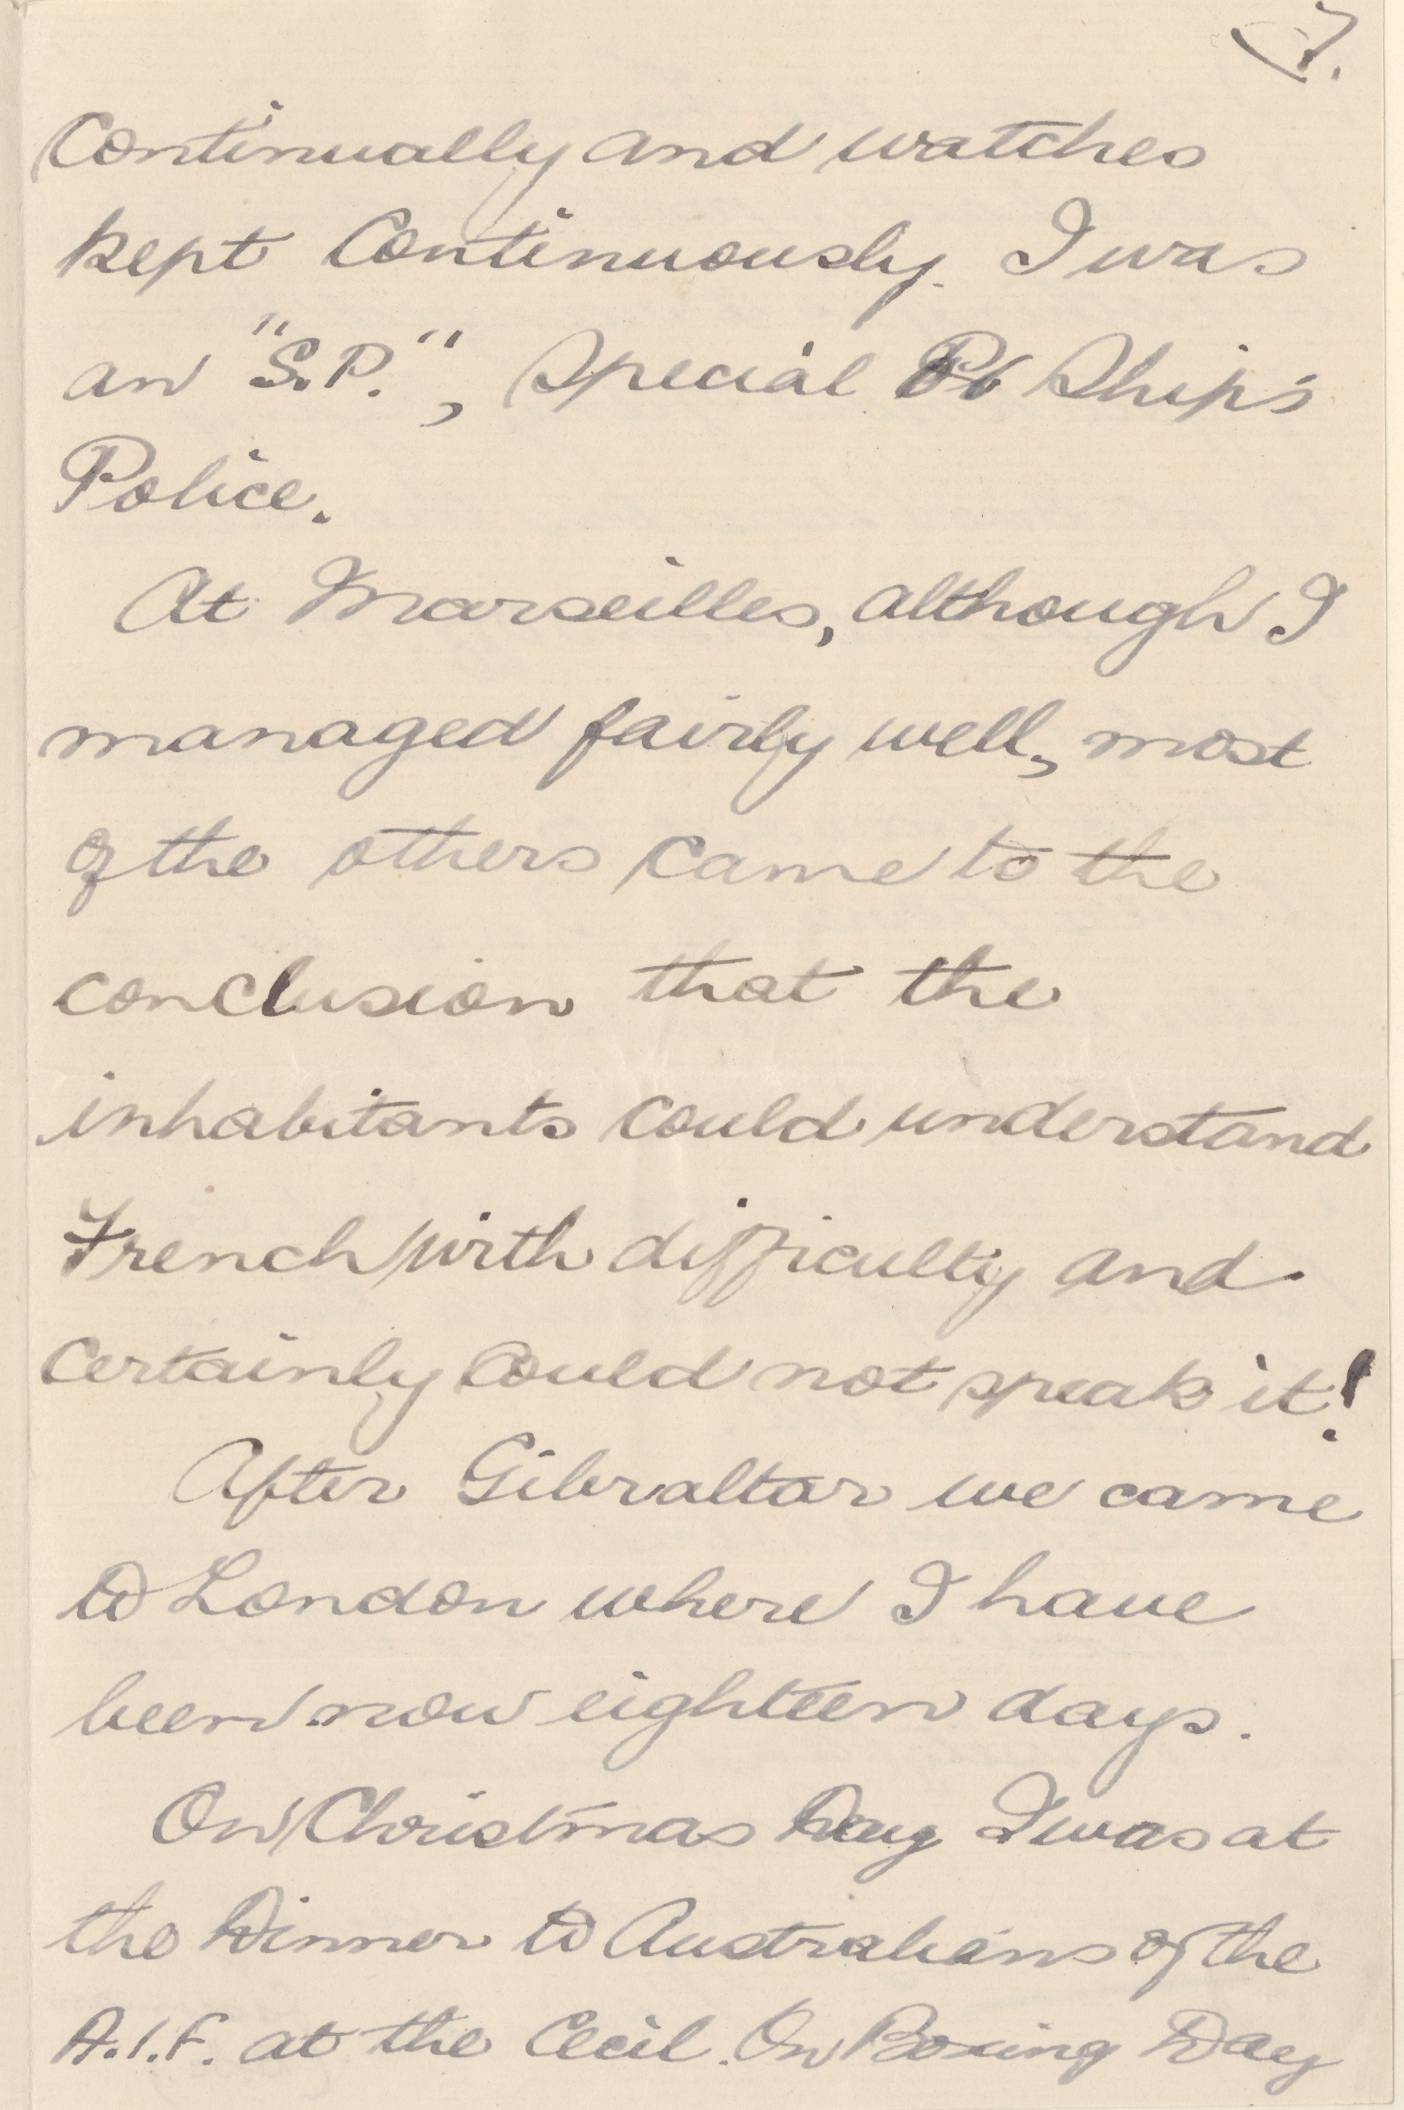 7.
Continually and watches
kept Continuously. I was
an "S.P.", Special Ship's
Police.
At Marseilles, although I
managed fairly well, most
of the others came to the
conclusion that the
inhabitants could understand
French with difficulty and
certainly could not speak it!
After Gibraltar we came
to London where I have
been now eighteen days.
On Christmas Day I was at
the Dinner to Australians of the
A.I.F. at the Cecil. On Boxing Day